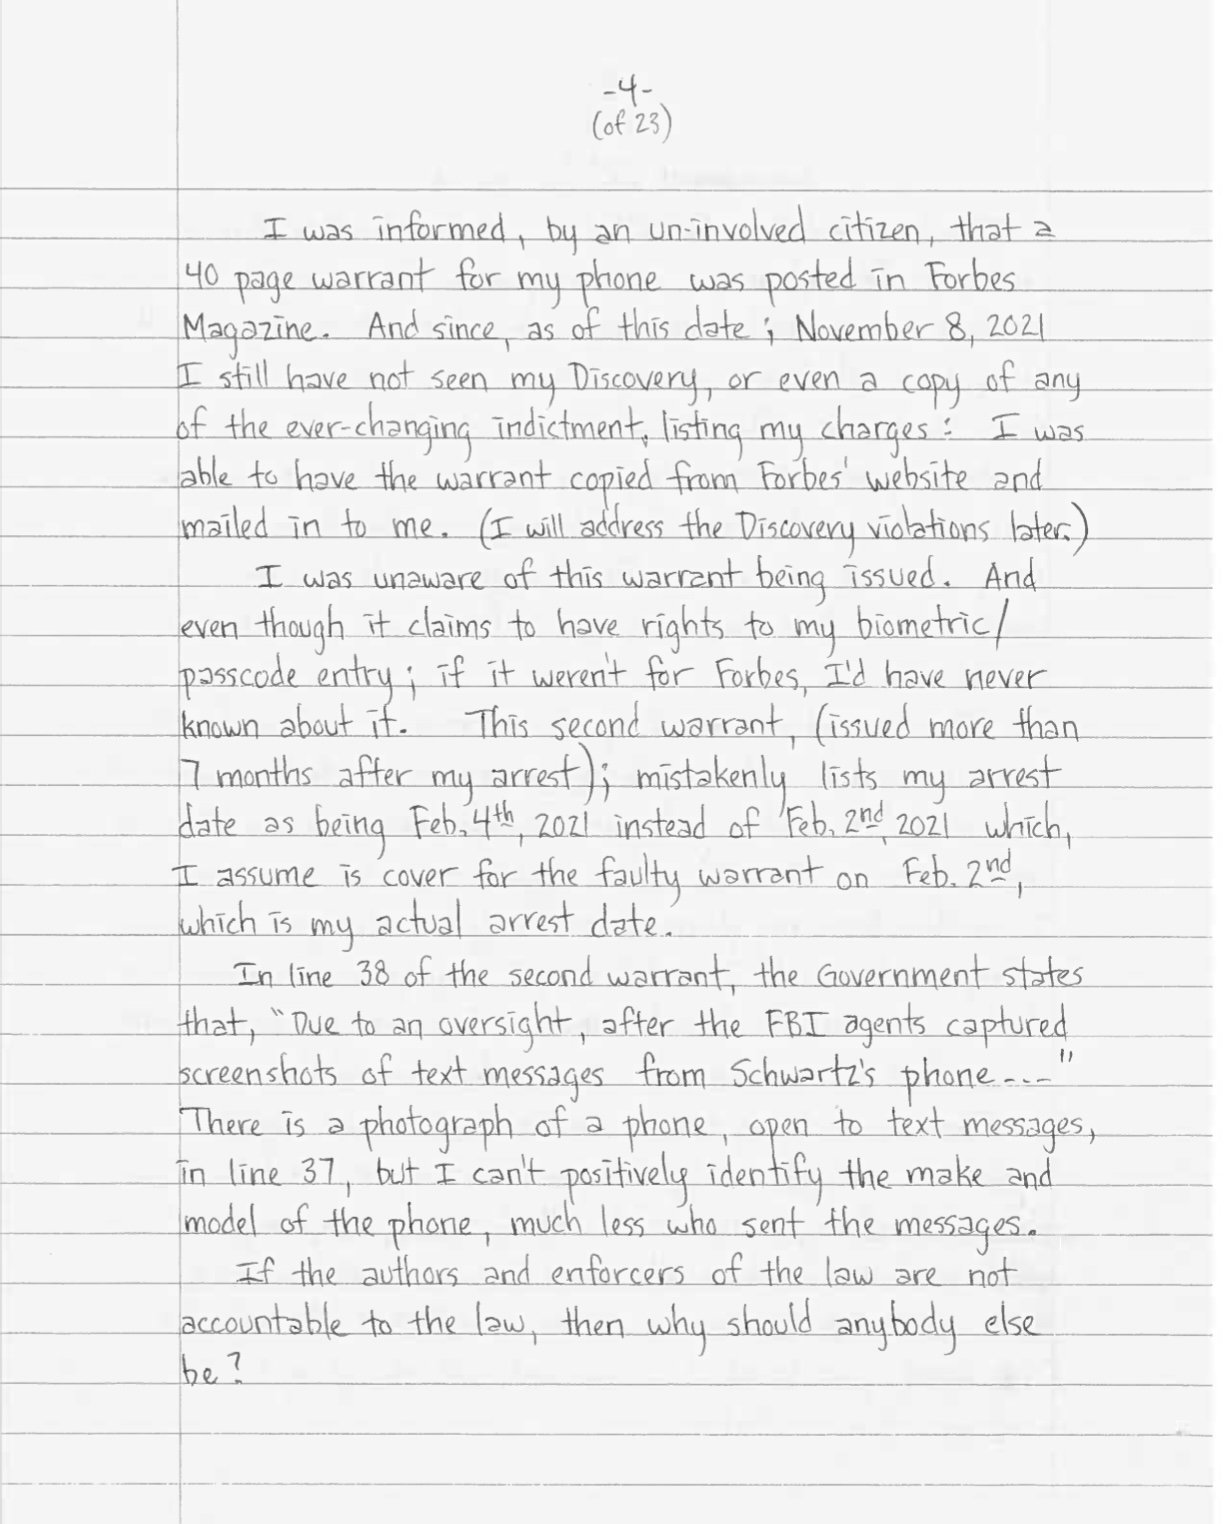 -4-
(of 23)
I was informed, by an un-involved citizen, that a
40 page warrant for my phone was posted in Forbes
Magazine. And since, as of this date; November 8, 2021
I still have not seen my Discovery, or even a copy of any
of the ever-changing indictment, listing my charges: I was
able to have the warrant copied from Forbes' website and
mailed in to me. (I will address the Discovery violations later.)
I was unaware of this warrant being issued. And
even though it claims to have rights to my biometric/
passcode entry; if it weren't for Forbes, I'd have never
known about it. This second warrant, (issued more than
7 months after my arrest); mistakenly lists my arrest
date as being Feb. 4th, 2021 instead of Feb. 2nd, 2021 which,
I assume is cover for the faulty warrant on Feb. 2nd,
which is my actual arrest date.
In line 38 of the second warrant, the Government states
that, "Due to an oversight, after the FBI agents captured
screenshots of text messages from Schwartz's phone----"
There is a photograph of a phone, open to text messages,
in line 37, but I can't positively identify the make and
model of the phone, much less who sent the messages.
If the authors and enforcers of the law are not
accountable to the law, then why should anybody else
be?